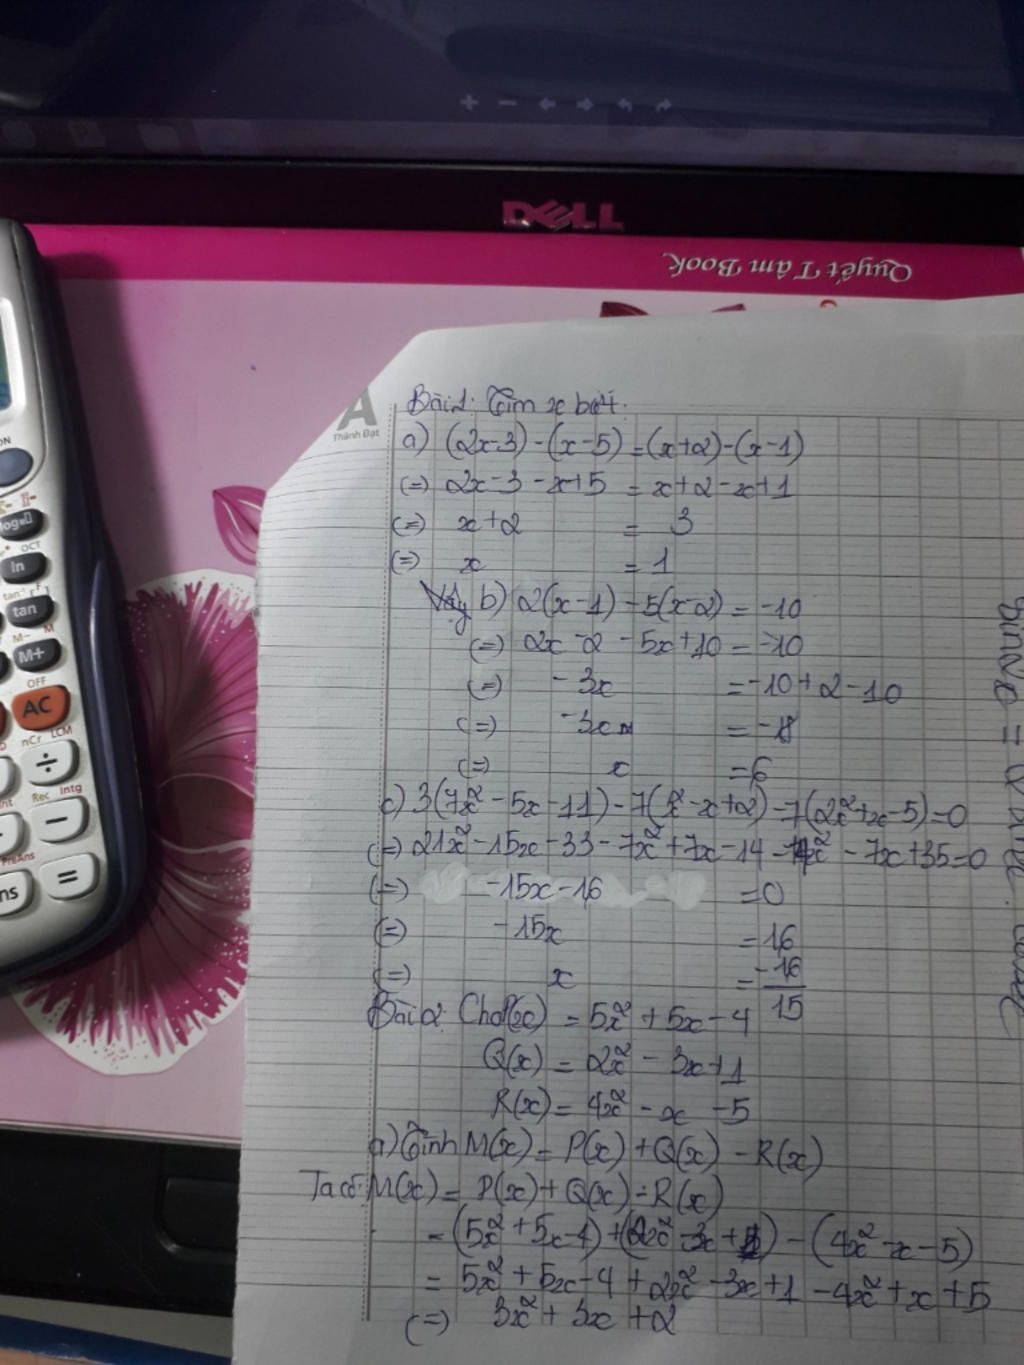 DELL
Quyết Tâm Book
A
Thành Đạt
ON
log
OCT
ln
tan⁻¹ F
tan
M- M
M+
OFF
AC
nCr LCM
÷
Rec Intg
−
PreAns
=
Bài 1: Tìm x biết:
a) (2x-3)-(x-5)=(x+2)-(x-1)
(=) 2x-3-x+5 = x+2-x+1
(=) x+2 = 3
(=) x = 1
Vậy b) 2(x-1)-5(x-2) = -10
(=) 2x-2-5x+10 = -10
(=) -3x = -10+2-10
(=) -3x = -18
(=) x = 6
c) 3(7x²-5x-11)-7(x²-x+2)-7(2x²+x-5)=0
(=) 21x²-15x-33-7x²+7x-14-14x²-7x+35=0
(=) -15x-16 = 0
(=) -15x = 16
(=) x = -16/15
Bài 2: Cho P(x) = 5x²+5x-4
Q(x) = 2x²-3x+1
R(x) = 4x²-x-5
a) Tính M(x) = P(x)+Q(x)-R(x)
Ta có: M(x) = P(x)+Q(x)-R(x)
= (5x²+5x-4)+(2x²-3x+1)-(4x²-x-5)
= 5x²+5x-4+2x²-3x+1-4x²+x+5
(=) 3x²+3x+2